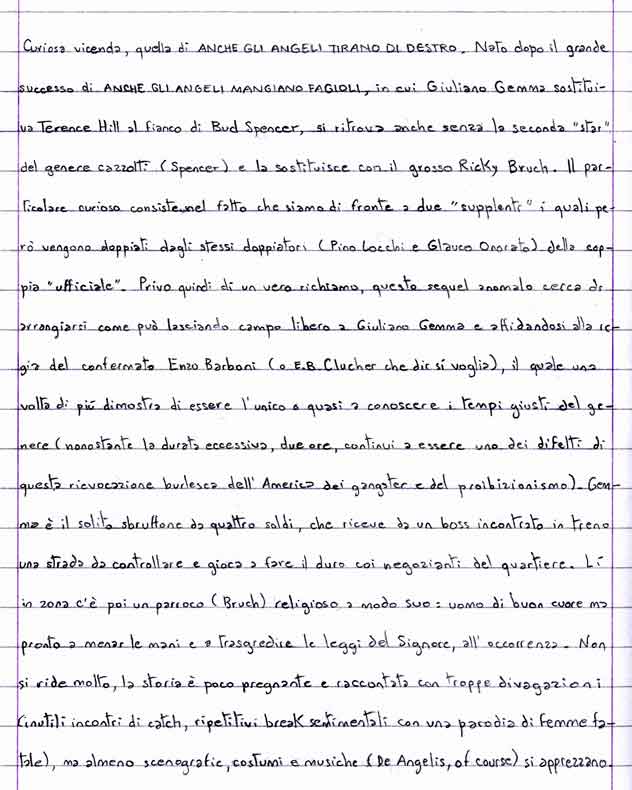 Curiosa vicenda, quella di ANCHE GLI ANGELI TIRANO DI DESTRO. Nato dopo il grande
successo di ANCHE GLI ANGELI MANGIANO FAGIOLI, in cui Giuliano Gemma sostitui-
va Terence Hill al fianco di Bud Spencer, si ritrova anche senza la seconda "star"
del genere cazzotti (Spencer) e la sostituisce con il grosso Ricky Bruch. Il par-
ticolare curioso consiste nel fatto che siamo di fronte a due "supplenti" i quali pe-
rò vengono doppiati dagli stessi doppiatori (Pino Locchi e Glauco Onorato) della cop-
pia "ufficiale". Privo quindi di un vero richiamo, questo sequel anomalo cerca di
arrangiarsi come può lasciando campo libero a Giuliano Gemma e affidandosi alla re-
gia del confermato Enzo Barboni (o E.B. Clucher che dir si voglia), il quale una
volta di più dimostra di essere l'unico o quasi a conoscere i tempi giusti del ge-
nere (nonostante la durata eccessiva, due ore, continui a essere uno dei difetti di
questa rievocazione burlesca dell'America dei gangster e del proibizionismo). Gem-
ma è il solito sbruffone da quattro soldi, che riceve da un boss incontrato in treno
una strada da controllare e gioca a fare il duro coi negozianti del quartiere. Lì
in zona c'è poi un parroco (Bruch) religioso a modo suo: uomo di buon cuore ma
pronto a menar le mani e a trasgredire le leggi del Signore, all'occorrenza. Non
si ride molto, la storia è poco pregnante e raccontata con troppe divagazioni
(inutili incontri di catch, ripetitivi break sentimentali con una parodia di femme fa-
tale), ma almeno scenografie, costumi e musiche (De Angelis, of course) si apprezzano.